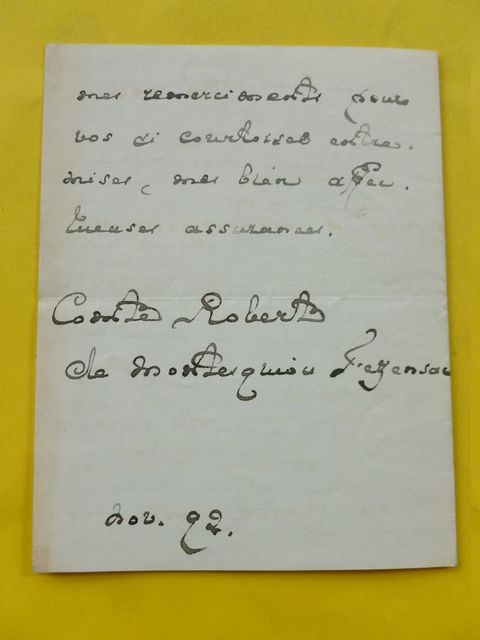 mes remerciments pour
vos si courtoises entre-
mises, mes bien affec-
tueuses assurances.
Comte Robert
de Montesquiou Fezensac
nov. 92.